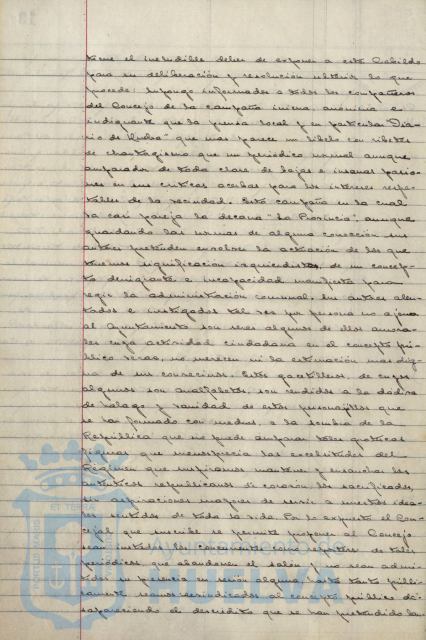 tiene el ineludible deber de exponer a este Cabildo
para su deliberación y resolución ulterior lo que
procede: Supongo informados a todos los compañeros
del Concejo de la campaña inicua, anónima e
indignante que la prensa local y en particular "Dia-
rio de Huelva" que mas parece un libelo con ribetes
de chantagismo que un periódico normal aunque
amparador de toda clase de bajas e insanas pasio-
nes en sus criticas acerbas para los intereses respe-
tables de la vecindad. Esta campaña en la cual
la casi pareja la decana "La Provincia", aunque
guardando las normas de alguna corrección sus
autores pretenden envolver la actuación de los que
tenemos significación izquierdista, de un concep-
to denigrante e incapacidad manifiesta para
regir la administración comunal. Sus autores alen-
tados e instigados tal vez por persona no ajena
al Ayuntamiento son seres algunos de ellos amora-
les cuya actividad ciudadana en el concepto pú-
blico no merecen ni la estimación mas dig-
na de sus convecinos. Estos gacetilleros, de cuyos
algunos son analfabetos, son vendidos a la dádiva
de halago y vanidad de estos personajillos que
se han formado con medro, a la sombra de la
República que no puede amparar tales grotescas
figuras que menosprecia las exceltitudes del
Régimen que aspiramos mantener y ensanchar los
auténticos republicanos de corazón, los sacrificados,
sin aspiraciones mayores de servir a nuestros idea-
les sentidos de toda la vida. Por lo expuesto el Con-
cejal que suscribe se permite proponer al Concejo
sean invitados los concurrentes como repórters de tales
periódicos que abandonen el salón y no sean admi-
tidos su presencia en sesión alguna, hasta tanto públi-
camente seamos reivindicados al concepto público de-
sapareciendo el descrédito que se han pretendido la-